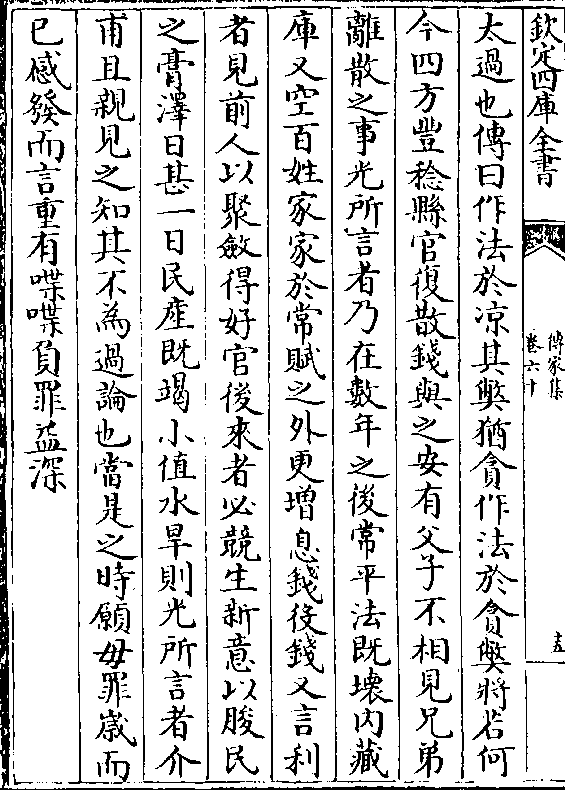 欽定四庫全書
傳家集
卷六十
十五
太過也傳曰作法於凉其弊猶貪作法於貪弊將若何
今四方豐稔縣官復散錢與之安有父子不相見兄弟
離散之事光所言者乃在數年之後常平法既壞内藏
庫又空百姓家家於常賦之外更增息錢役錢又言利
者見前人以聚斂得好官後來者必競生新意以朘民
之膏澤日甚一日民産既竭小值水旱則光所言者介
甫且親見之知其不為過論也當是之時願毋罪嵗而
已感發而言重有喋喋負罪益深